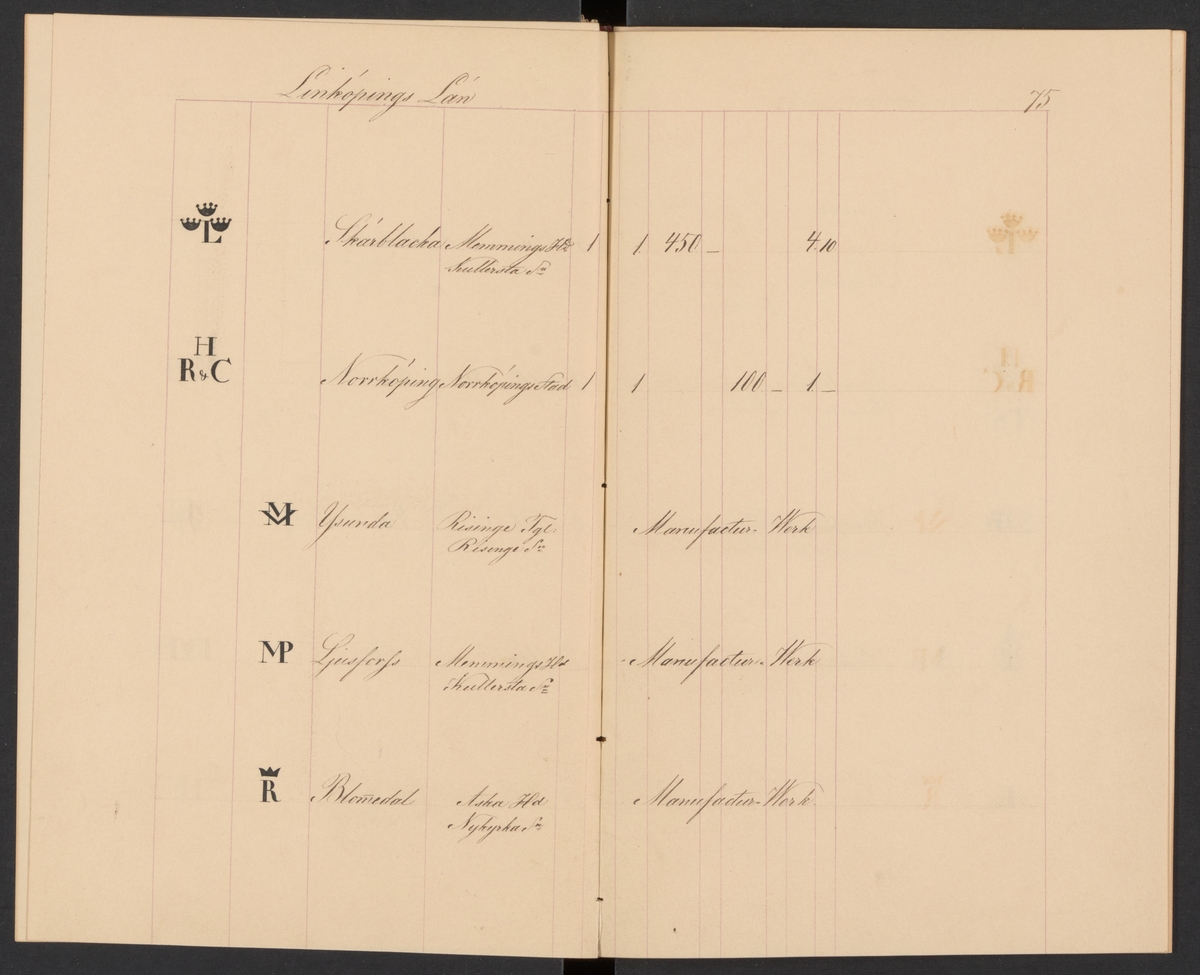 Linköpings Län
75
L Skärblacka Memmings Hd 1 1. 450. — 4. 10
Kullersta Sn
H
R & C Norrköping Norrköpings Stad 1 1 100. — 1. —
M Ysunda Risinge Tgl. Manufactur-Werk
Risinge Sn
MP Ljusforss Memmings Hd Manufactur-Werk
Kullersta Sn
R Blom̄edal Aska Hd Manufactur-Werk.
Nykyrka Sn